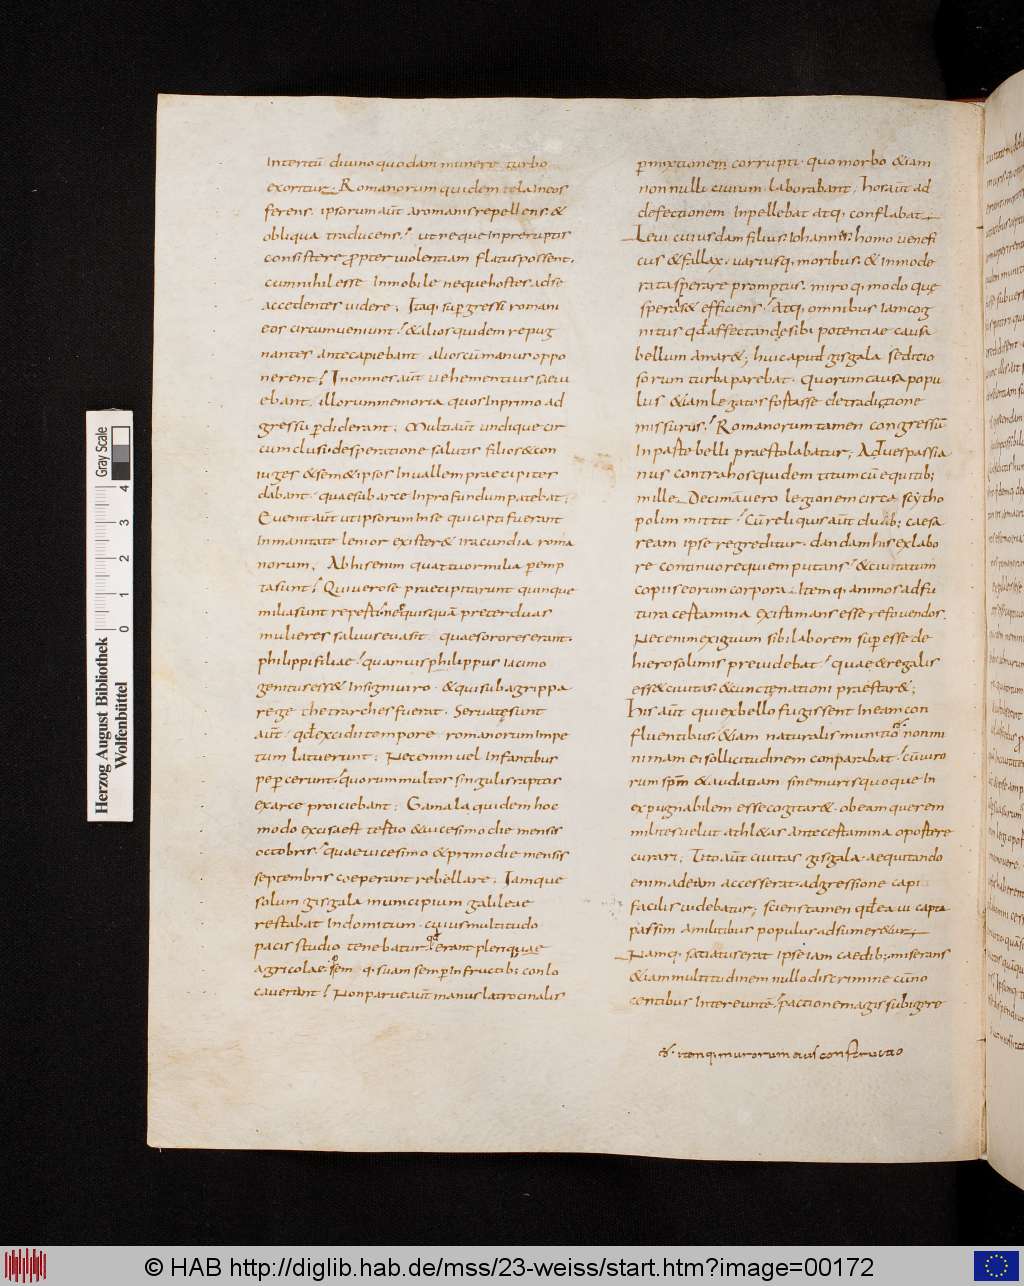 Interitũ diuino quodam munere turbo
exoritur. Romanorum quidem tela Ineos
ferens. ipsorum aũt aromanis repellens. &
obliqua traducens. ut neque Inpreruptis
consistere propter uiolentiam flatus possent.
cum nihil esse Inmobile neque hostes adse
accedentes uidere; Itaq; sup gressi romani
eos circumueniunt. & alios quidem repug
nantes antecapiebant. alios cũ manus oppo
nerent. Inomnes aũt uehementius saeui
ebant. illorum memoria quos Inprimo ad
gressu p diderant; Multi aũt undique cir
cumclusi. desperatione salutis filios & con
iuges & sem & ipsos Inuallem praecipites
dabant. quae sub arce Inprofundum patebat;
Euenit aũt ut ipsorum Inse qui capti fuerant
Inmanitate lenior exister& iracundia roma
norum; Abhis enim quattuor milia p emp
ta sunt. Qui uero se praecipitarunt quinque
milia sunt reperti. ne quisquã preter duas
mulieres saluus euasit. quae sorores erant.
philippi filiae. quamuis philippus Iacimo
genitus ess& Insigni uiro. & qui sub agrippa
rege thetrarches fuerat. Seruatę sunt
aũt. qđ excidii tempore romanorum Impe
tum latuerunt; Nec enim uel Infantibus
pepercerunt. quorum multos singulis raptos
exarce proiciebant; Gamala quidem hoc
modo excisa est tertio & uicesimo die mensis
octobris. quae uicesimo & primo die mensis
septembris coeperant rebellare; Iamque
solum gisgala municipium galileae
restabat Indomitum. cuius multitudo
pacis studio tenebatur. erant plenquae
agricolae. sem q; suam semp Infructib; conlo
cauerant. Non parue aũt manus latrocinalis
p mixtionem corrupti. quo morbo &iam
nonnulli ciuium laborabant; hos aũt ad
defectionem Inpellebat atq; conflabat
Leui cuiusdam filius Iohannes. homo uenefi
cus & fallax. uariusq; moribus. & Inmode
rata sperare promptus. miro q; modo quę
sperass& efficiens. Atq; omnibus Iamcog
nitus qđ affectandę sibi potentiae causa
bellum amar&; huic apud gisgala seditio
sorum turba parebat. quorum causa popu
lus &iam legatos fortasse detradictione
missurus. Romanorum tamen congressũ
Inparte belli praestolabatur; Aduespassia
nus contra hos quidem titum cũ equitib;
mille. Decimã uero legionem circa scytho
polim mittit. Cũ reliquis aũt duab; caesa
ream ipse regreditur. dandam his exlabo
re continuo requiem putans. & ciuitatum
copiis eorum corpora. Item q; animos ad fu
tura certamina existimans esse refouendos.
Nec enim exiguum sibi laborem sup esse de
hierosolimis preuidebat. quae & regalis
ess& ciuitas. & cunctę nationi praestar&;
His aũt qui exbello fugissent Ineam con
fluentibus. &iam naturalis munitio non mi
nimam ei sollicitudinem conparabat. cũ uiro
rum spm̃ & audatiam sine muris quoque In
expugnabilem esse cogitar&. obeam quę rem
milites uelut athl&as ante certamina oportere
curari; Tito aũt ciuitas gisgala. aequitando
enim ad eam accesserat. adgressione capi
facilis uidebatur; sciens tamen qđ ea ui capta
passim amilitibus populus adsumer&ur;
Namq; satiatus erat ipse iam caedib; miserans
&iam multitudinem nullo discrimine cũ no
centibus Intereuntẽ. pactione magis subigere
itemq; murorum eius constructio
Herzog August Bibliothek
Wolfenbüttel
0 1 2 3 4
Gray Scale
© HAB http://diglib.hab.de/mss/23-weiss/start.htm?image=00172